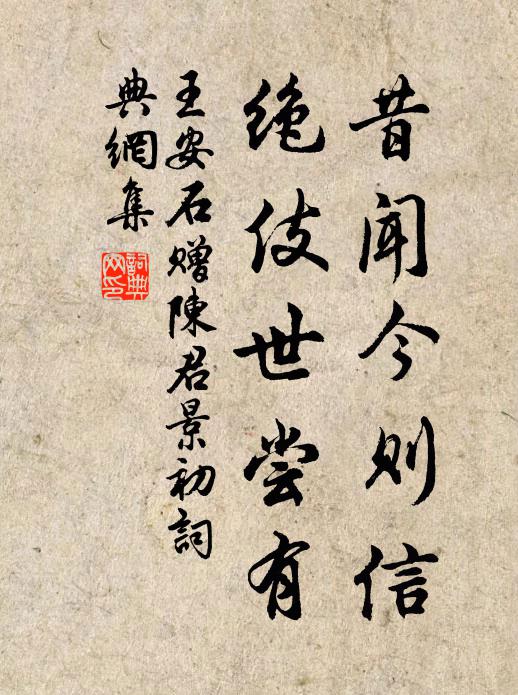 昔闻今则信
绝伎世尝有
王安石赠陳君景初詞
典網集
詞典网印